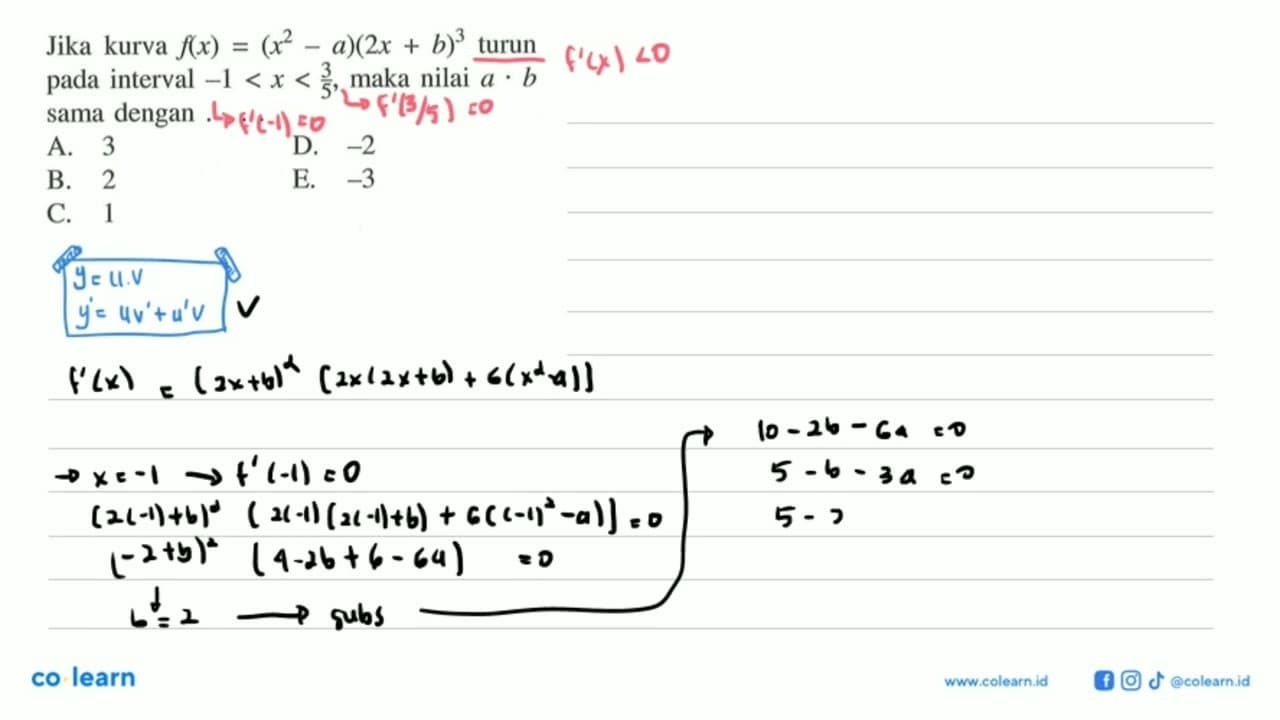 Jika kurva f(x) = (x² – a)(2x + b)³ turun f'(x) < 0
pada interval –1 < x < 3/5, maka nilai a · b
sama dengan . . . ↳ f'(-1) = 0 ↳ f'(3/5) = 0
A. 3 D. –2
B. 2 E. –3
C. 1
y = u.v
y' = uv' + u'v ✓
f'(x) = (2x+b)² [2x(2x+b) + 6(x²-a)]
→ x = -1 → f'(-1) = 0
(2(-1)+b)² (2(-1)(2(-1)+b) + 6((-1)²-a)] = 0
(-2+b)² (4-2b+6-6a) = 0
↓
b = 2 → subs
→ 10 - 2b - 6a = 0
5 - b - 3a = 0
5 - 2
co·learn
www.colearn.id @colearn.id